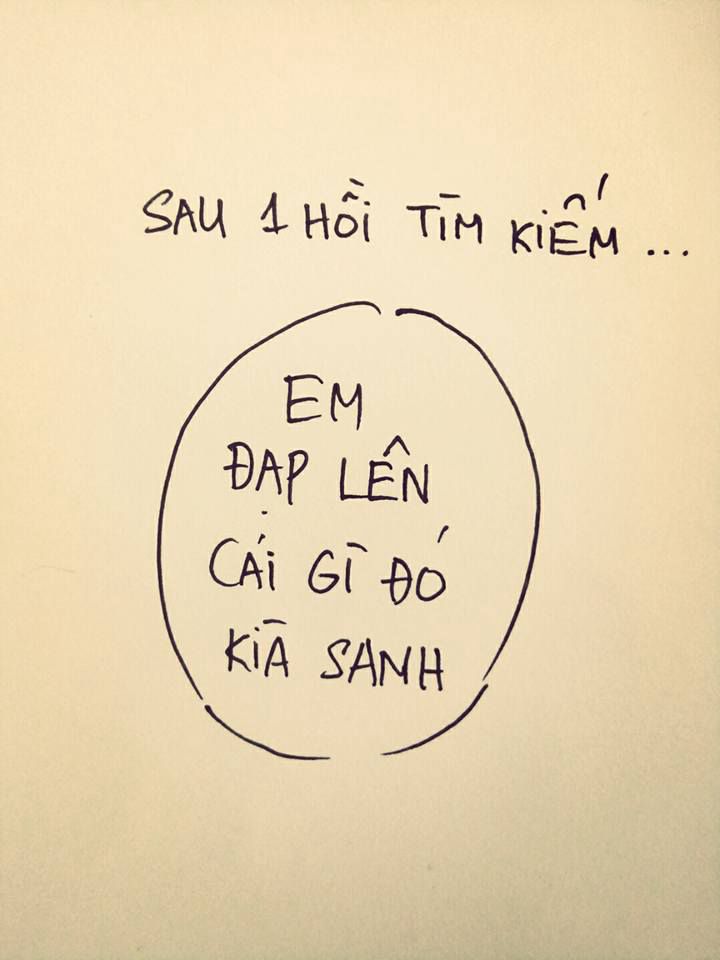 SAU 1 HỒI TÌM KIẾM ...
EM
ĐẠP LÊN
CÁI GÌ ĐÓ
KÌA SANH